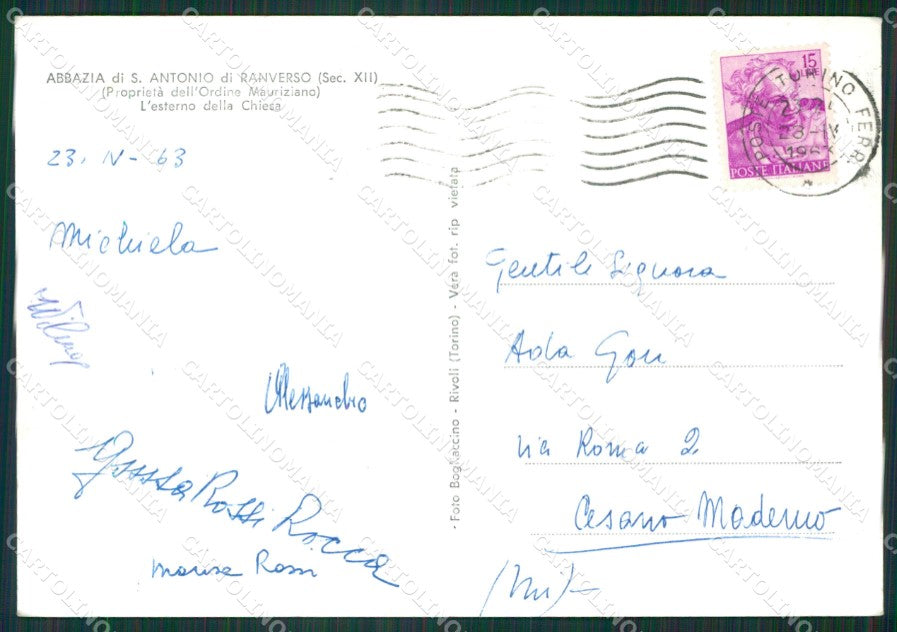 ABBAZIA di S. ANTONIO di RANVERSO (Sec. XII)
(Proprietà dell'Ordine Mauriziano)
L'esterno della Chiesa
23. IV - 63
Michiela
Alessandro
Rossi Rocca
Marisa Rossi
Foto Bogliaccino - Rivoli (Torino) - Vera fot. rip vietata
15
LIRE
POSTE ITALIANE
POSTE TORINO FERR
28-IV
196
Gentile Signora
Ada Gori
via Roma 2
Cesano Maderno
CARTOLINOMANIA